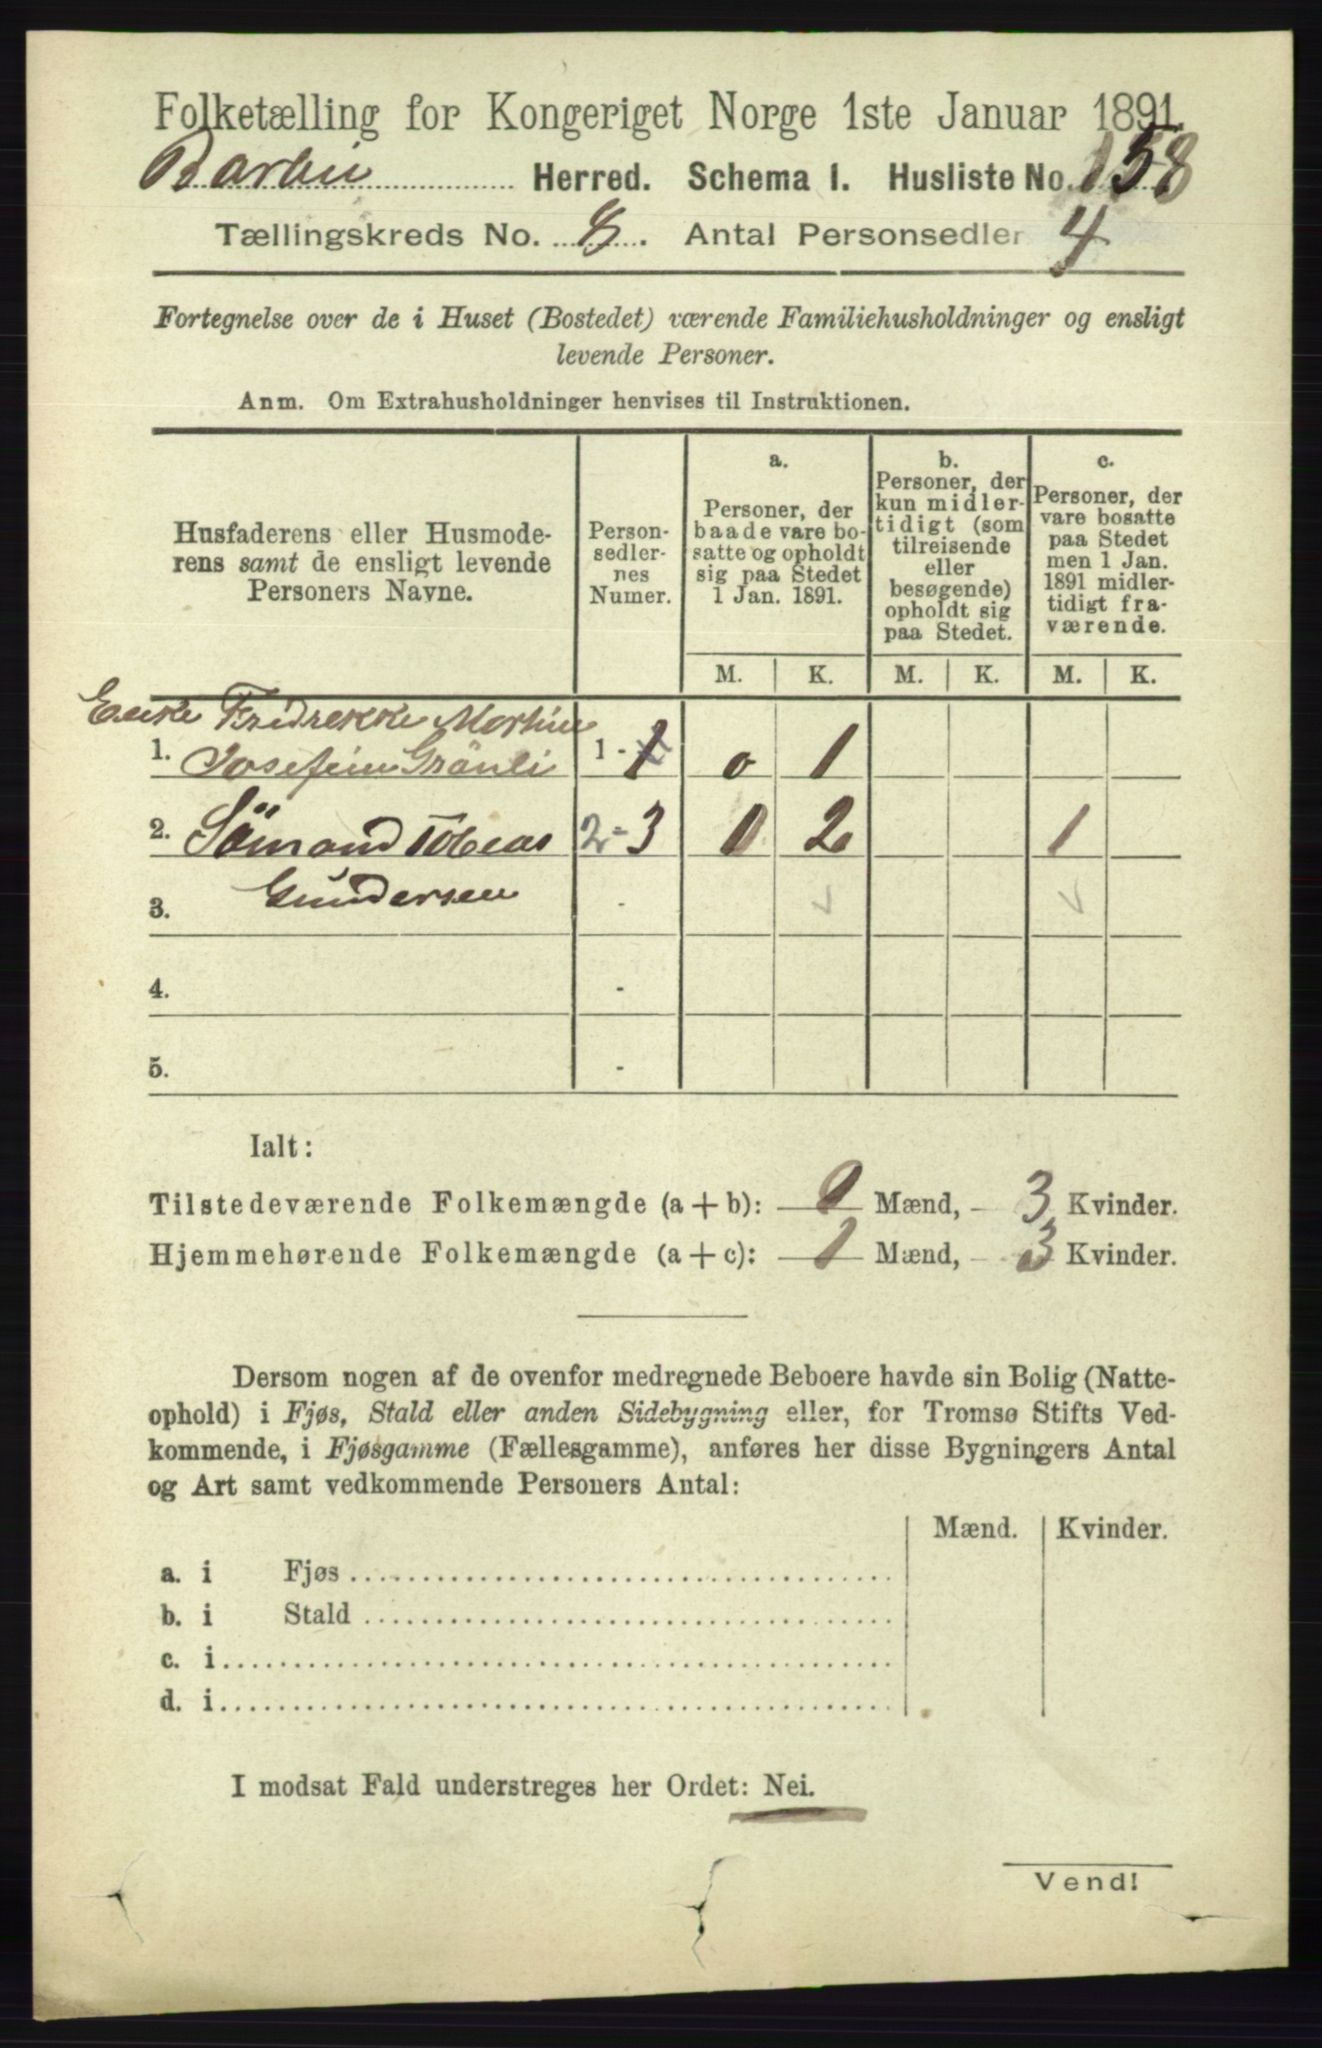 Folketælling for Kongeriget Norge 1ste Januar 1891.
Barbu Herred. Schema 1. Husliste No. 158
Tællingskreds No. 8. Antal Personsedler 4
Fortegnelse over de i Huset (Bostedet) værende Familiehusholdninger og ensligt
levende Personer.
Anm. Om Extrahusholdninger henvises til Instruktionen.
Husfaderens eller Husmode-
rens samt de ensligt levende
Personers Navne.
Person-
sedler-
nes
Numer.
a.
Personer, der
baade vare bo-
satte og opholdt
sig paa Stedet
1 Jan. 1891.
b.
Personer, der
kun midler-
tidigt (som
tilreisende
eller
besøgende)
opholdt sig
paa Stedet.
c.
Personer, der
vare bosatte
paa Stedet
men 1 Jan.
1891 midler-
tidigt fra-
værende.
M. K. M. K. M. K.
Enke Fredrekke Mortine
1. Josefine Grönli 1 - 1 0 1
2. Sömand Tobias 2 - 3 0 2 1
3. Gundersen -
4. -
5. -
Ialt:
Tilstedeværende Folkemængde (a + b): 0 Mænd, 3 Kvinder.
Hjemmehørende Folkemængde (a + c): 1 Mænd, 3 Kvinder.
Dersom nogen af de ovenfor medregnede Beboere havde sin Bolig (Natte-
ophold) i Fjøs, Stald eller anden Sidebygning eller, for Tromsø Stifts Ved-
kommende, i Fjøsgamme (Fællesgamme), anføres her disse Bygningers Antal
og Art samt vedkommende Personers Antal:
Mænd. Kvinder.
a. i Fjøs
b. i Stald
c. i
d. i
I modsat Fald understreges her Ordet: Nei.
Vend!